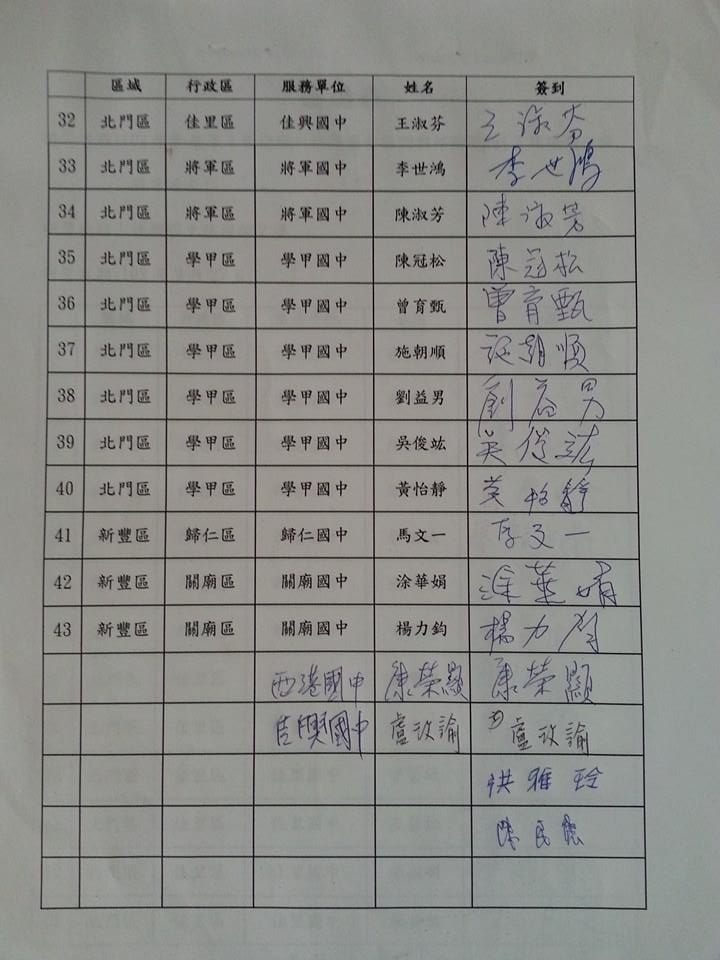 區域 行政區 服務單位 姓名 簽到
32 北門區 佳里區 佳興國中 王淑芬 王淑芬
33 北門區 將軍區 將軍國中 李世鴻 李世鴻
34 北門區 將軍區 將軍國中 陳淑芳 陳淑芳
35 北門區 學甲區 學甲國中 陳冠松 陳冠松
36 北門區 學甲區 學甲國中 曾育甄 曾育甄
37 北門區 學甲區 學甲國中 施朝順 施朝順
38 北門區 學甲區 學甲國中 劉益男 劉益男
39 北門區 學甲區 學甲國中 吳俊竑 吳俊竑
40 北門區 學甲區 學甲國中 黃怡靜 黃怡靜
41 新豐區 歸仁區 歸仁國中 馬文一 馬文一
42 新豐區 關廟區 關廟國中 涂華娟 涂華娟
43 新豐區 關廟區 關廟國中 楊力鈞 楊力鈞
西港國中 康榮顯 康榮顯
佳興國中 盧玫諭 盧玫諭
洪雅玲